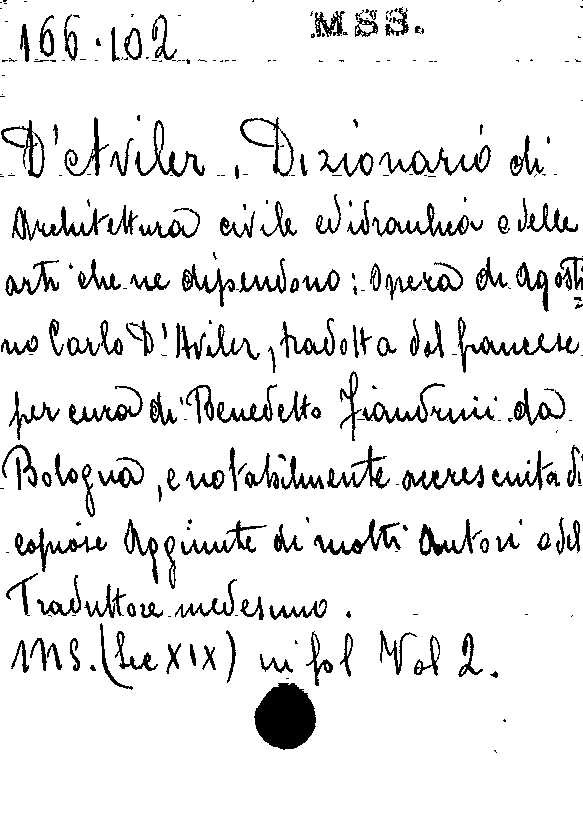 166.102 MSS.
D'Aviler, Dizionario di
Architettura civile ed idraulica e delle
arti che ne dipendono: opera di Agosti
no Carlo D'Aviler, tradotta dal francese
per cura di Benedetto Fiandrini da
Bologna, e notabilmente accresciuta di
copiose Aggiunte di molti Autori e del
Traduttore medesimo.
MS. (Sec XIX) in fol Vol 2.